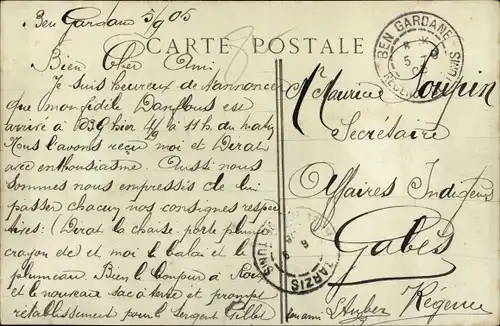 Ben Gardane 5/9 05
CARTE POSTALE
Bien Cher Ami
Je suis heureux de t'annoncer
que mon fidèle Danflous est
arrivé à B.G. hier 4/9 à 11 h. du matin
Nous l'avons reçu moi et Dérat
avec enthousiasme. Aussi nous
sommes nous empressés de lui
passer chacun nos consignes respec
tives: (Dérat la chaise porte plume
crayon etc et moi le balai et le
plumeau. Bien le bonjour à
et le nouveau sac à terre et prompt
rétablissement pour le sergent
ton ami
Mr Maurice Loupin
Secrétaire
Affaires Indigènes
Gabès
Régence
BEN GARDANE
RÉGENCE TUNIS
ZARZIS
TUNISIE